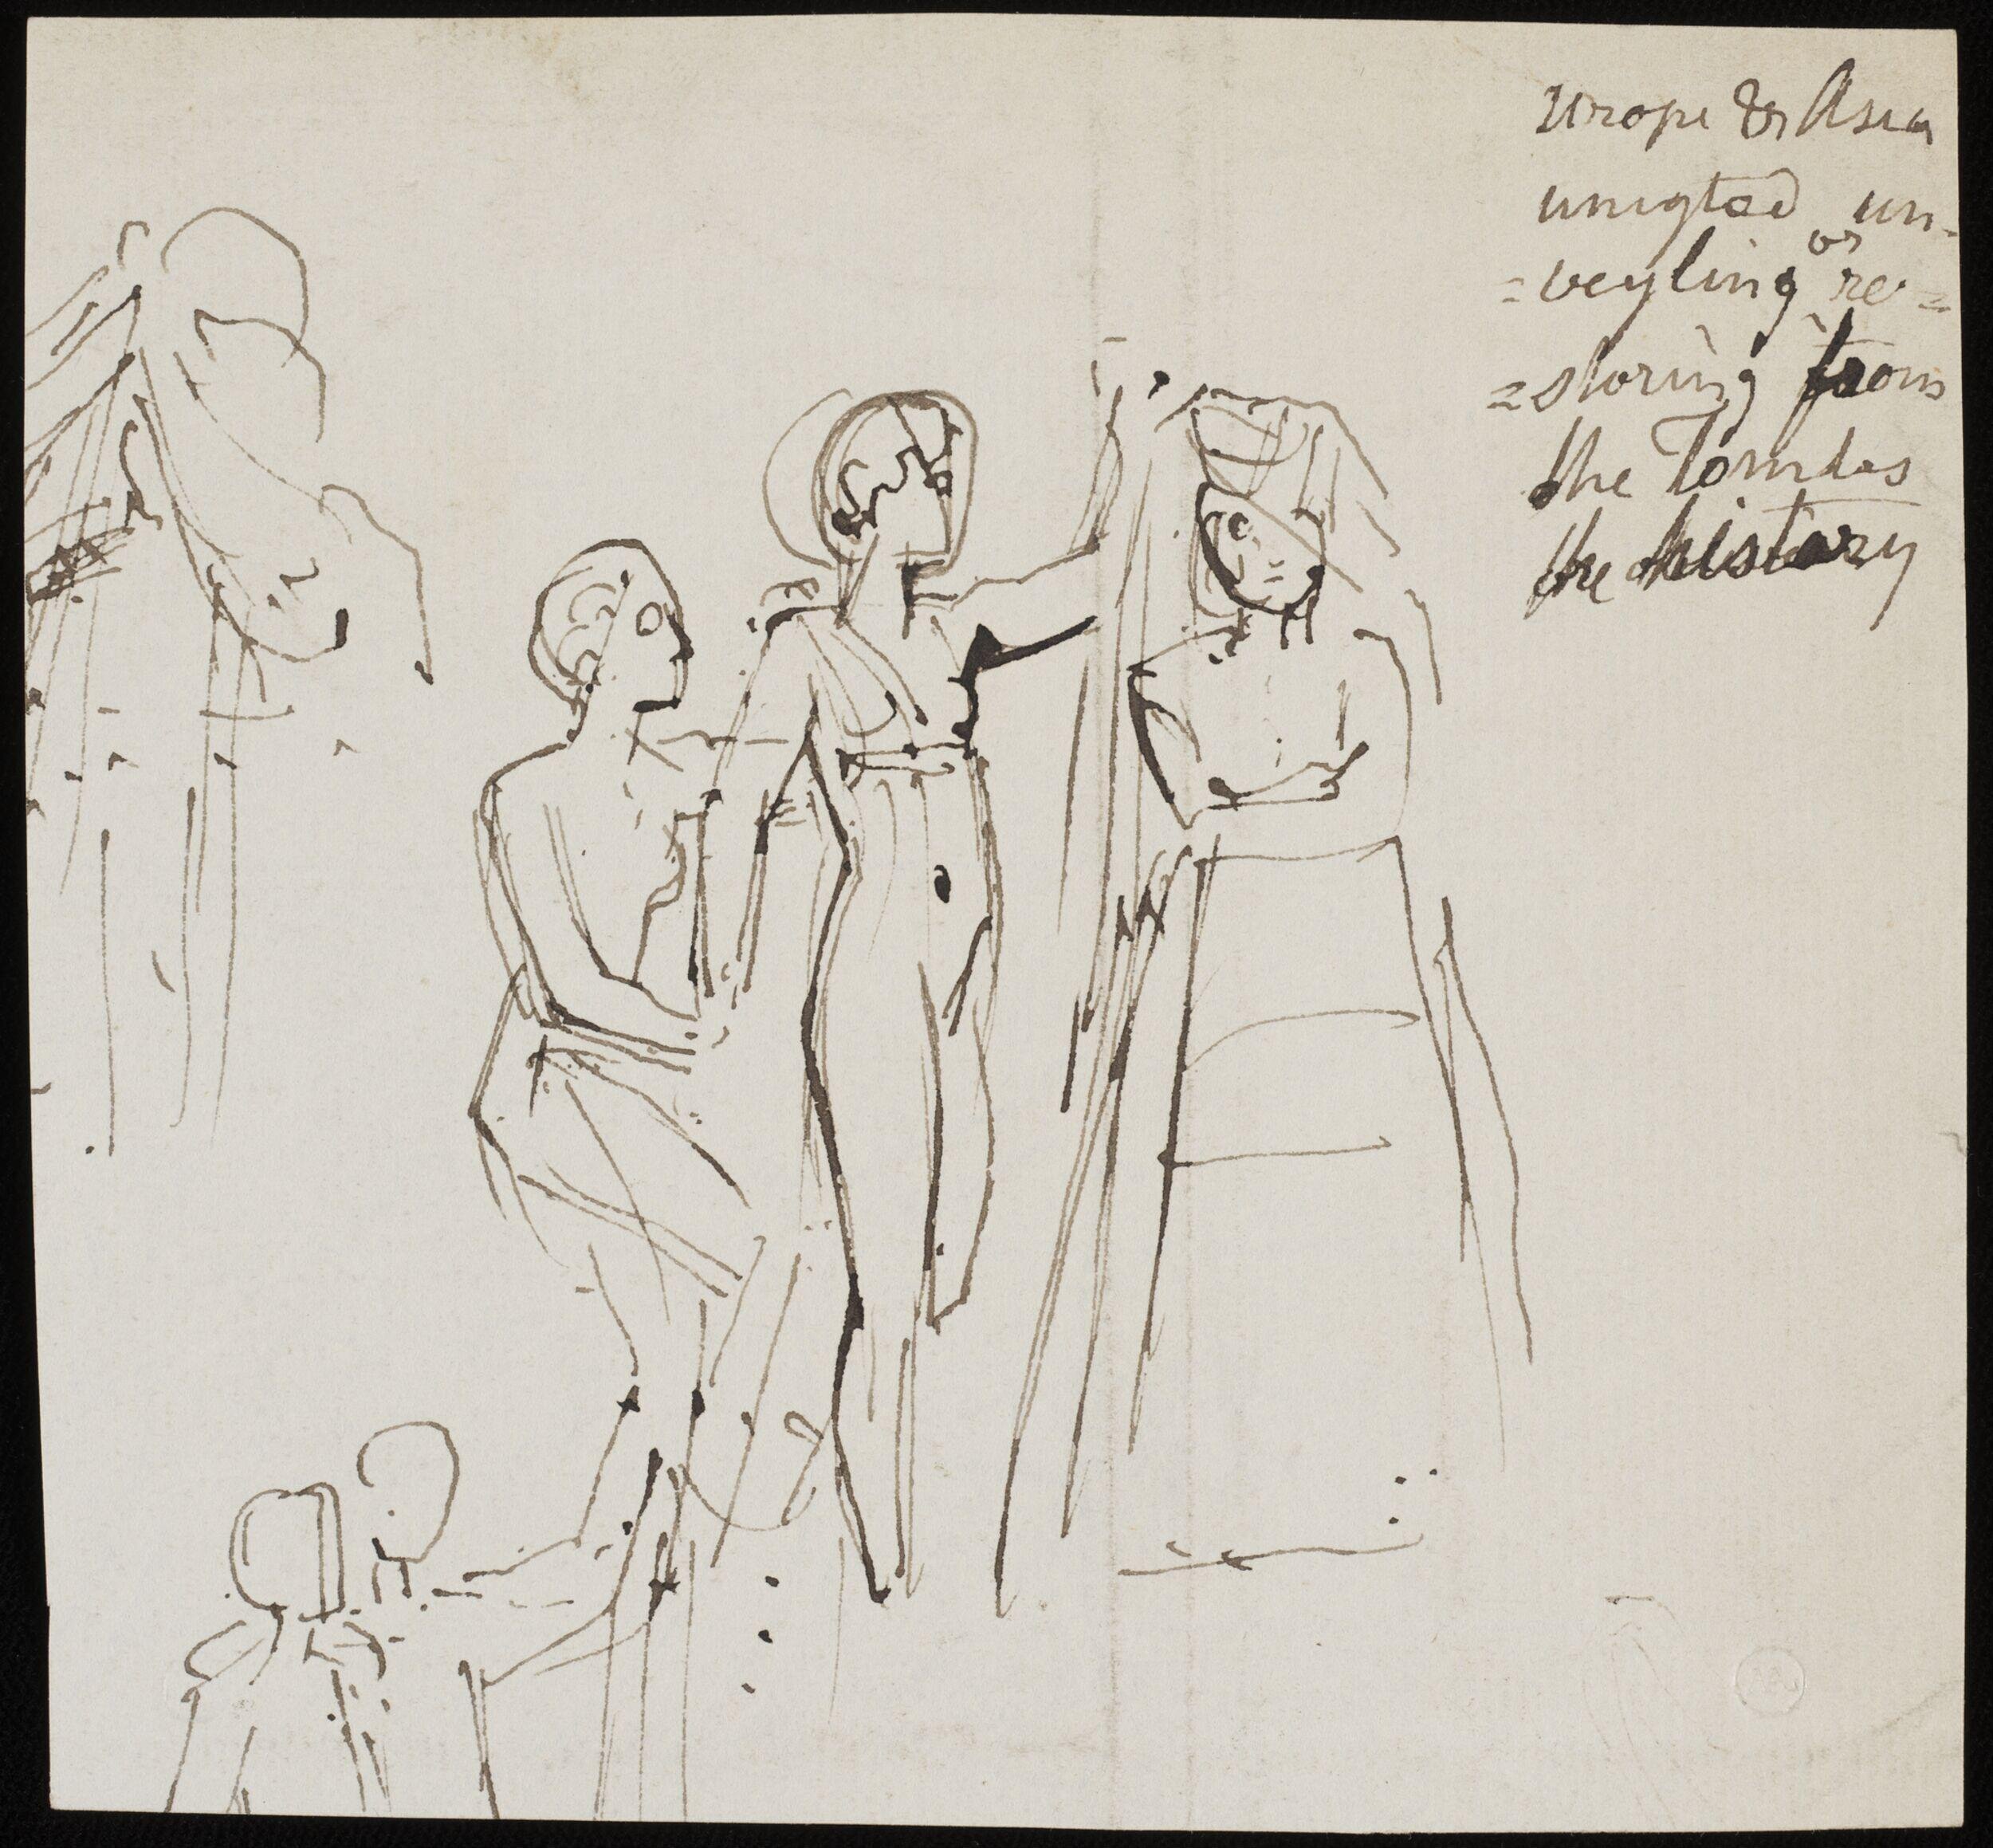 Urope & Asia
unigted un-
=veyling or re=
=storing from
the Tombs
the history